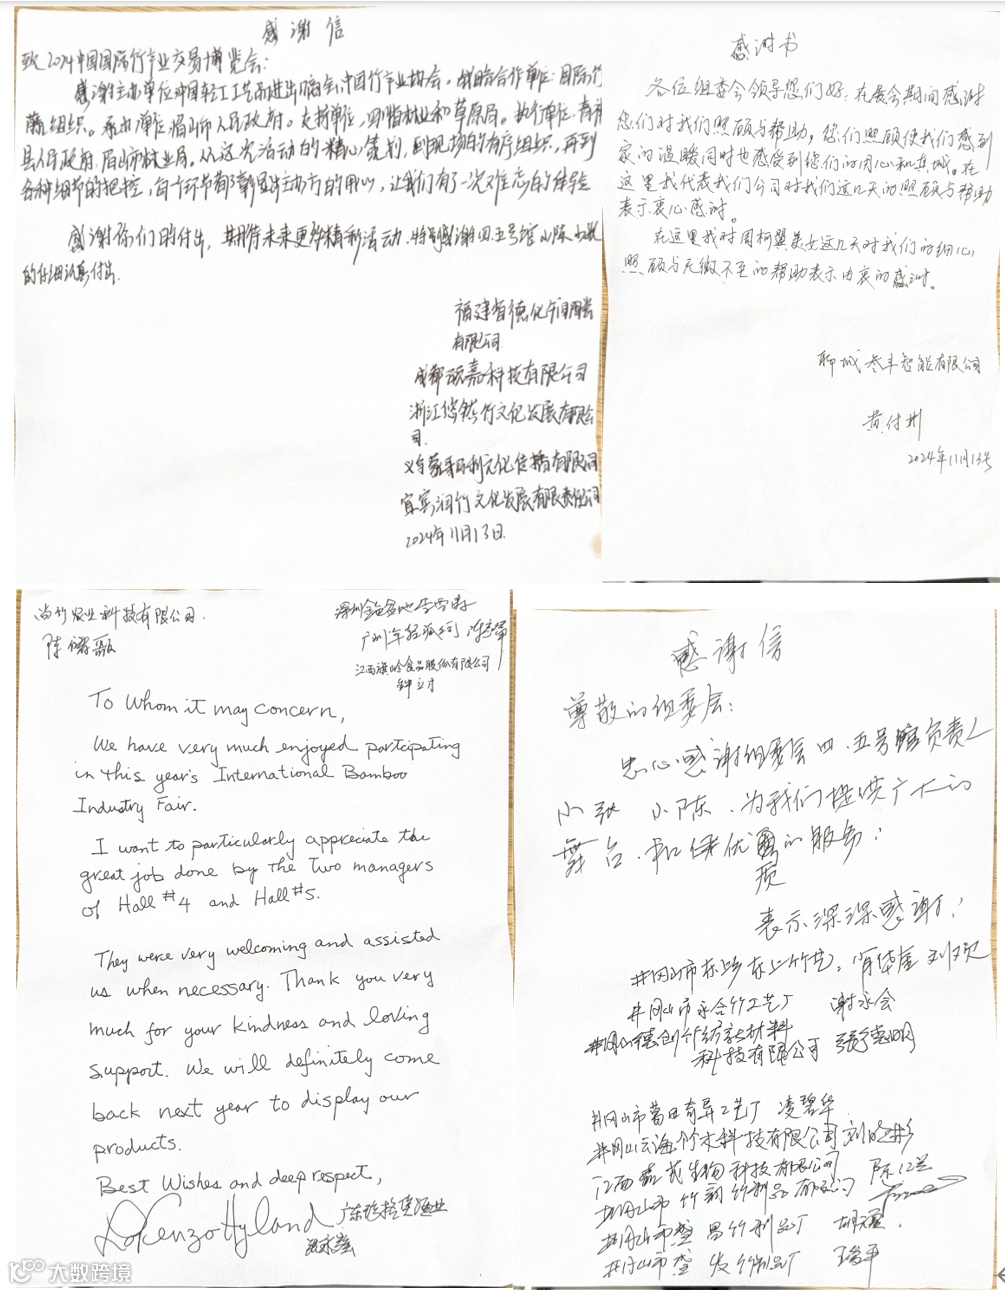 感谢信
致2024中国国际竹产业交易博览会：
感谢主办单位中国轻工工艺品进出口商会、中国竹产业协会。战略合作单位：国际竹
藤组织。承办单位眉山市人民政府。支持单位，四川省林业和草原局。执行单位：青神
县人民政府、眉山市林业局。从这次活动的精心策划，到现场的有序组织，再到
各种细节的把控，每个环节都彰显主办方的用心，让我们有了一次难忘的体验
感谢你们的付出，期待未来更多精彩活动，特别感谢四、五号馆小陈小张
的仔细认真付出.
福建省德化
有限公司
成都 科技有限公司
浙江悠然竹文化发展有限公
司.
义乌 文化传播有限公司
宜宾润竹文化发展有限责任公司
2024年11月13日.
感谢书
各位组委会领导您们好：在展会期间感谢
您们对我们照顾与帮助，您们照顾使我们感到
家的温暖同时也感受到您们的用心和真诚。在
这里我代表我们公司对我们这几天的照顾与帮助
表示衷心感谢。
在这里我对周柯翼美女这几天对我们的细心
照顾与无微不至的帮助表示由衷的感谢。
聊城 丰智能有限公司
黄付州
2024年11月13号
尚竹农业科技有限公司.
陈
江西旗岭食品股份有限公司
钟立才
To Whom it may concern,
We have very much enjoyed participating
in this year's International Bamboo
Industry Fair.
I want to particularly appreciate the
great job done by the two managers
of Hall #4 and Hall #5.
They were very welcoming and assisted
us when necessary. Thank you very
much for your kindness and loving
support. We will definitely come
back next year to display our
products.
Best Wishes and deep respect,
Lorenzo Hyland
感谢信
尊敬的组委会：
忠心感谢组委会四、五号馆负责人
小张 小陈、为我们提供广大的
舞台、和优质的服务；
表示深深感谢！
井冈山市 竹艺， 刘欢
井冈山市永合竹工艺厂 谢水会
井冈山德创竹纺新材料
科技有限公司 张德明
井冈山市葛田奇异工艺厂 凌碧华
井冈山云海竹木科技有限公司 刘
江西嘉茂生物科技有限公司 陈江兰
井冈山市竹翔竹制品有限公司
井冈山市 昌竹制品厂 胡
井冈山市 发竹制品厂 王
大数跨境